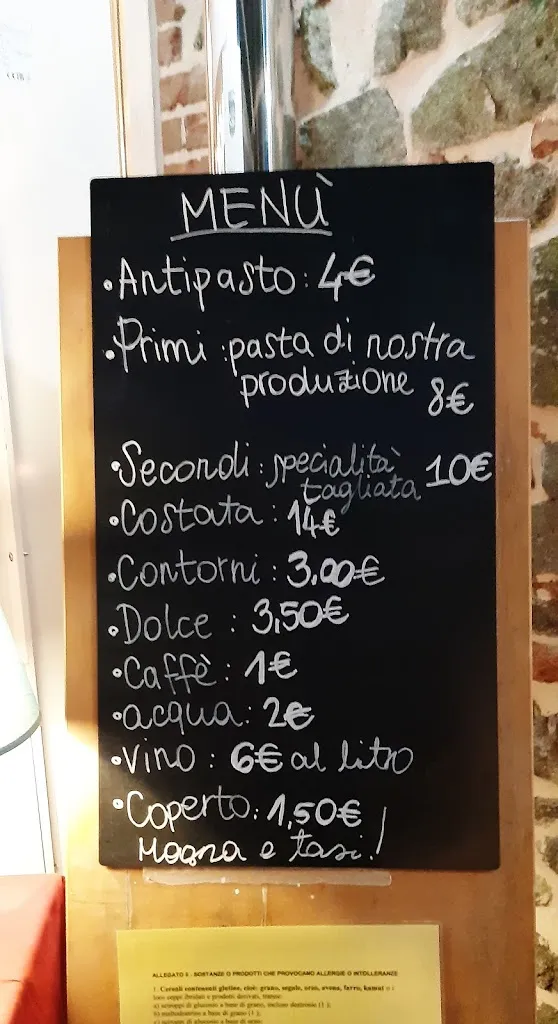 MENÙ
•Antipasto: 4€
•Primi: pasta di nostra
produzione 8€
•Secondi: specialità 10€
tagliata
•Costata: 14€
•Contorni: 3,00€
•Dolce: 3,50€
•Caffè: 1€
•acqua: 2€
•Vino: 6€ al litro
•Coperto: 1,50€
Magna e tasi!
ALLEGATO 6 - SOSTANZE O PRODOTTI CHE PROVOCANO ALLERGIE O INTOLLERANZE
1. Cereali contenenti glutine, cioè: grano, segale, orzo, avena, farro, kamut o i
loro ceppi ibridati e prodotti derivati, tranne:
a) sciroppi di glucosio a base di grano, incluso destrosio (1);
b) maltodestrine a base di grano (1);
c) sciroppi di glucosio a base di orzo;